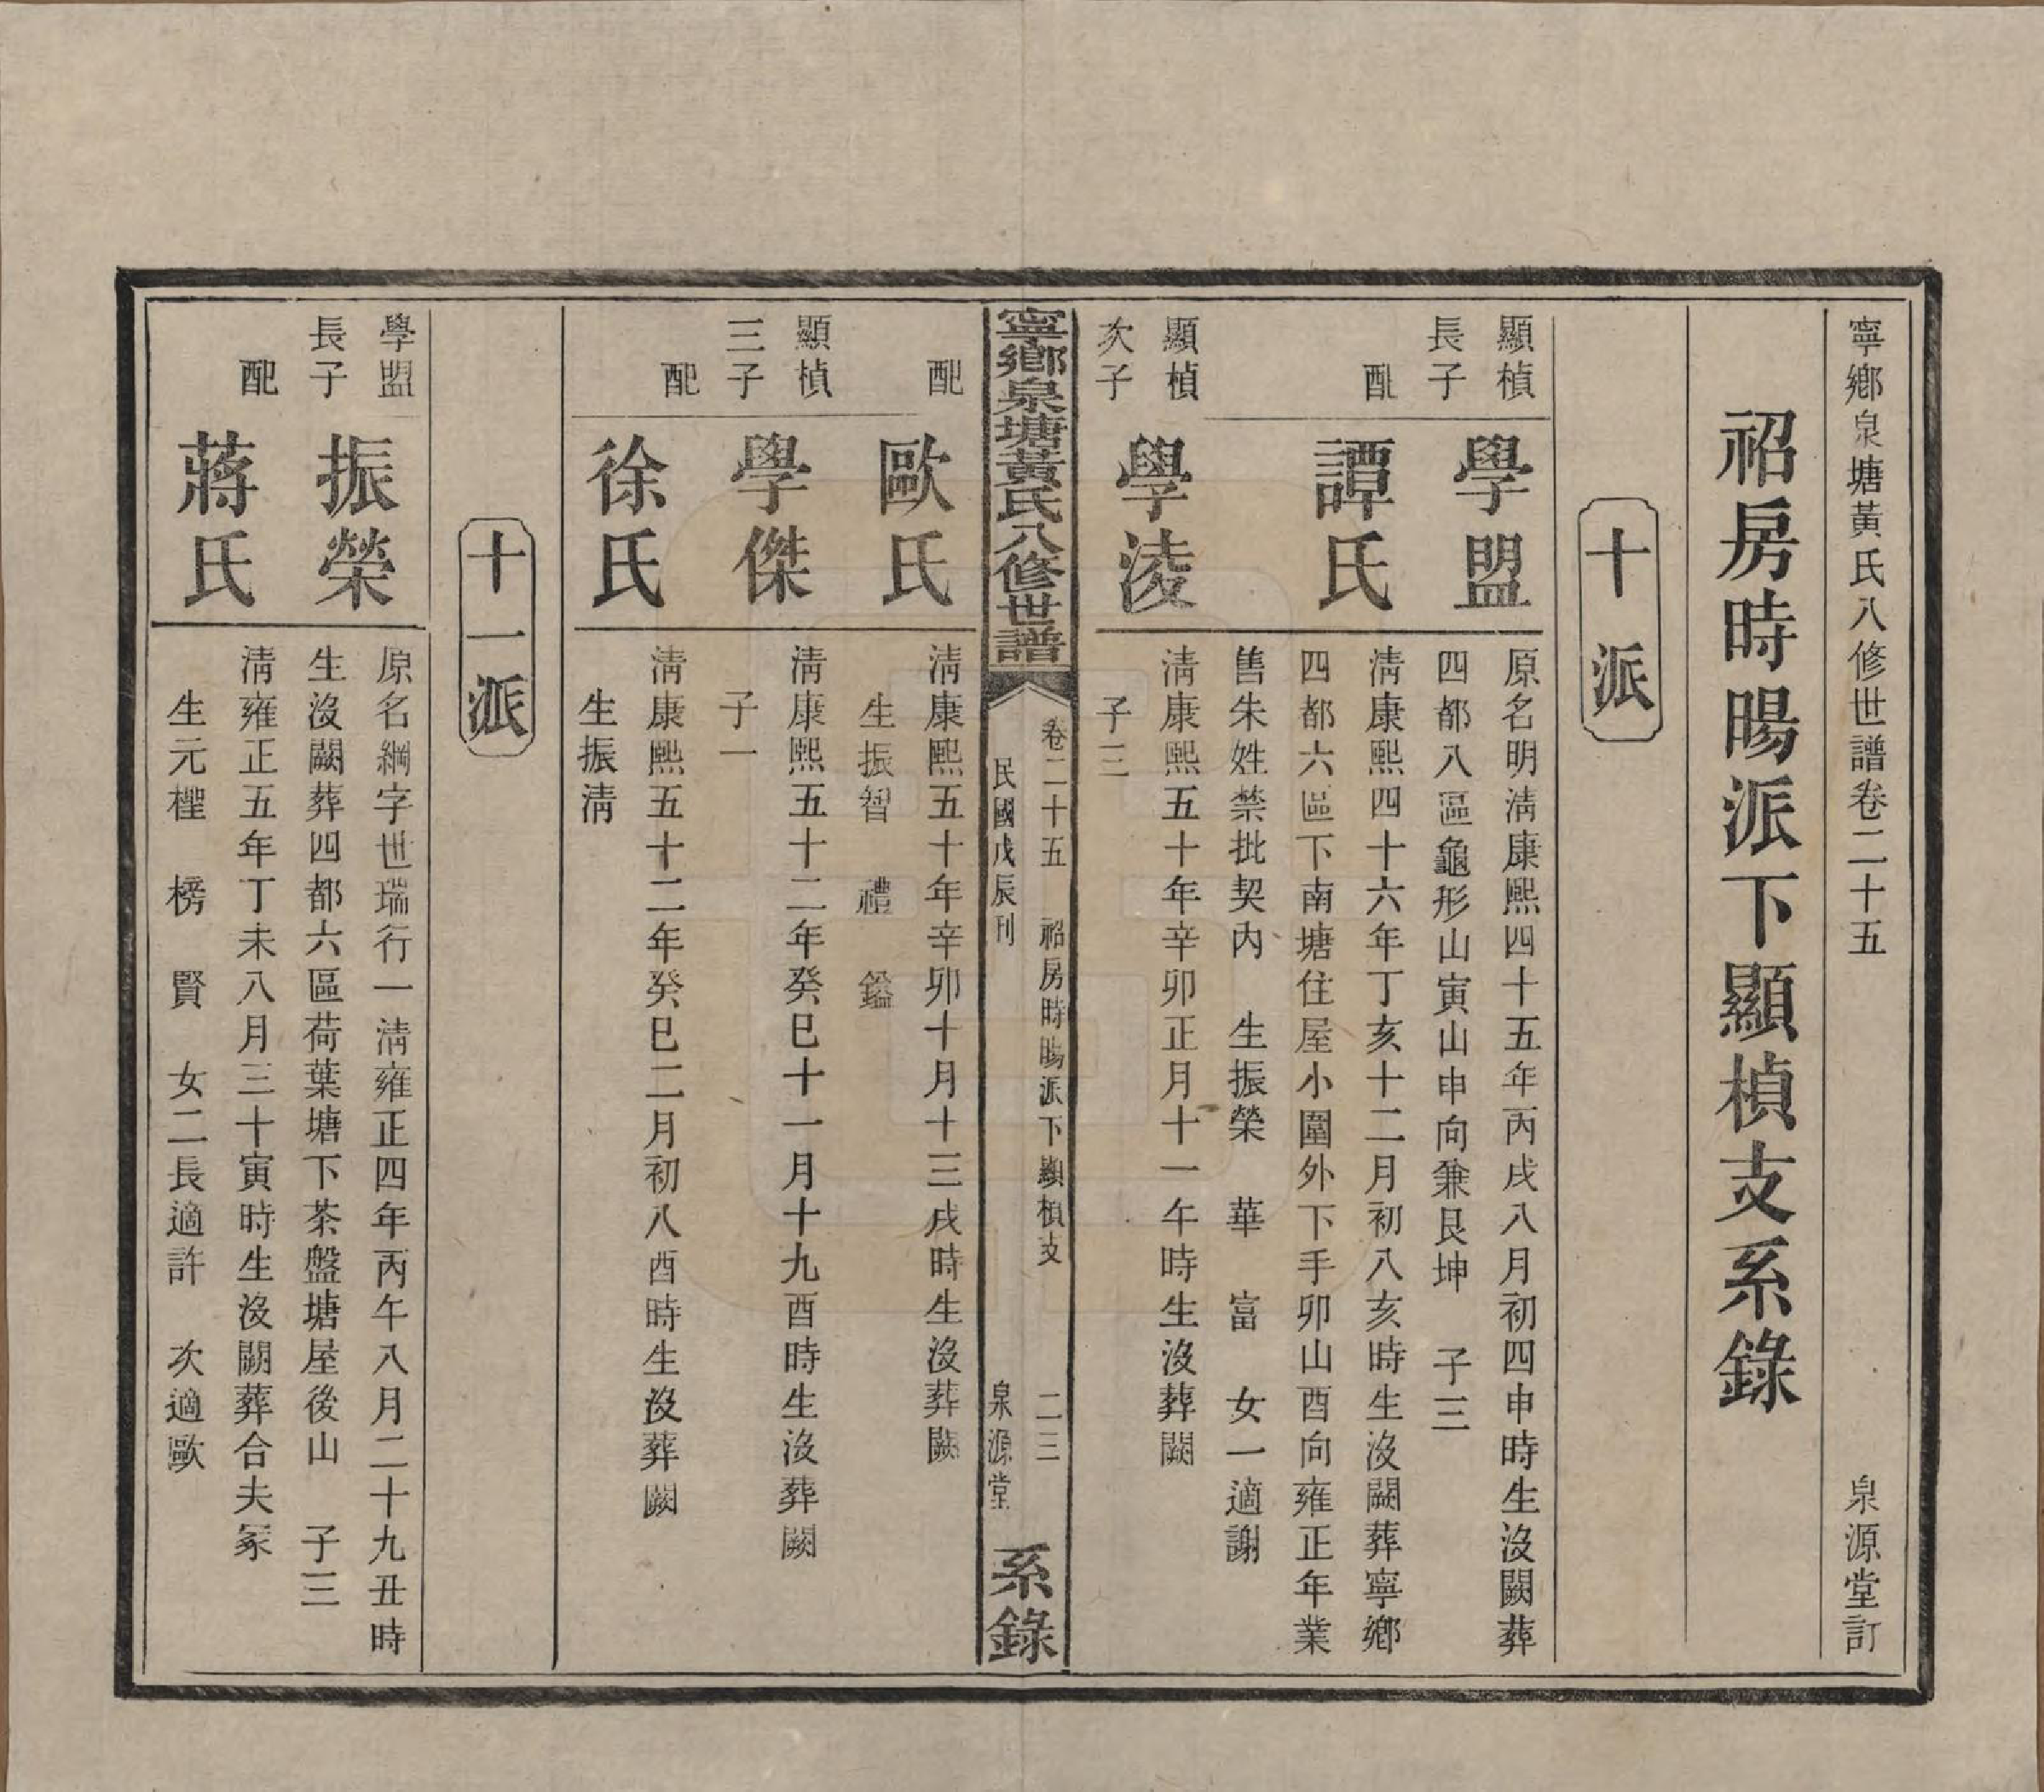 寧鄉泉塘黃氏八修世譜卷二十五　泉源堂訂
祒房時暘派下顯楨支系錄
十派
顯楨長子　學盟　原名明淸康熙四十五年丙戌八月初四申時生沒闕葬
四都八區龜形山寅山申向兼艮坤　子三
配　譚氏　淸康熙四十六年丁亥十二月初八亥時生沒闕葬寧鄉
四都六區下南塘住屋小圍外下手卯山酉向雍正年業
售朱姓禁批契內　生振榮　華　富　女一適謝
顯楨次子　學淩　淸康熙五十年辛卯正月十一午時生沒葬闕
子三
寧鄉泉塘黃氏八修世譜　卷二十五　祒房時暘派下顯楨支　二三
民國戊辰刊　泉源堂　系錄
配　歐氏　淸康熙五十年辛卯十月十三戌時生沒葬闕
生振智　禮　鎰
顯楨三子　學傑　淸康熙五十二年癸巳十一月十九酉時生沒葬闕
子一
配　徐氏　淸康熙五十二年癸巳二月初八酉時生沒葬闕
生振淸
十一派
學盟長子　振榮　原名綱字世瑞行一淸雍正四年丙午八月二十九丑時
生沒闕葬四都六區荷葉塘下茶盤塘屋後山　子三
配　蔣氏　淸雍正五年丁未八月三十寅時生沒闕葬合夫冢
生元檉　榜　賢　女二長適許　次適歐